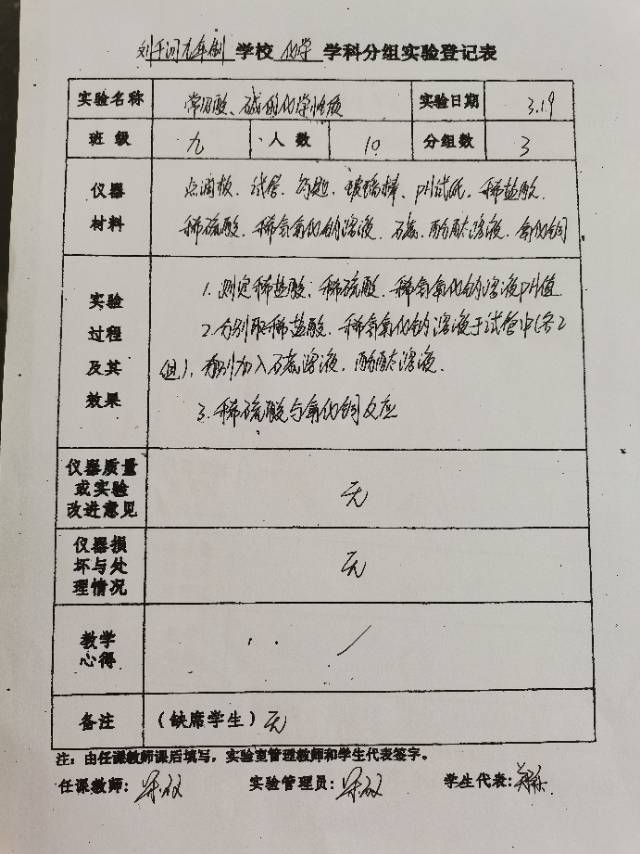 刘千河九年制 学校 化学 学科分组实验登记表
实验名称 常用酸、碱的化学性质 实验日期 3.19
班级 九 人数 10 分组数 3
仪器材料 点滴板、试管、药匙、玻璃棒、pH试纸、稀盐酸、
稀硫酸、稀氢氧化钠溶液、石蕊、酚酞溶液、氧化铜
实验过程及其效果
1. 测定稀盐酸、稀硫酸、稀氢氧化钠溶液pH值
2. 分别取稀盐酸、稀氢氧化钠溶液于试管中(各2
组)、分别加入石蕊溶液、酚酞溶液.
3. 稀硫酸与氧化铜反应
仪器质量或实验改进意见 无
仪器损坏与处理情况 无
教学心得 /
备注 (缺席学生) 无
注：由任课教师课后填写，实验室管理教师和学生代表签字。
任课教师: 实验管理员: 学生代表: